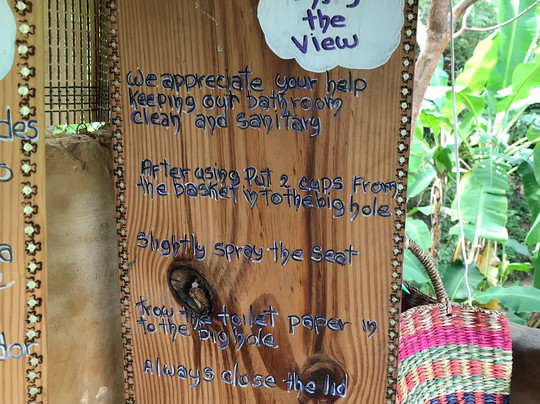 the
View
We appreciate your help
keeping our bathroom
clean and sanitary
After using Put 2 cups From
the basket in to the big hole
Slightly spray the seat
Trow the toilet paper in
to the big hole
Always close the lid
des
a
dor